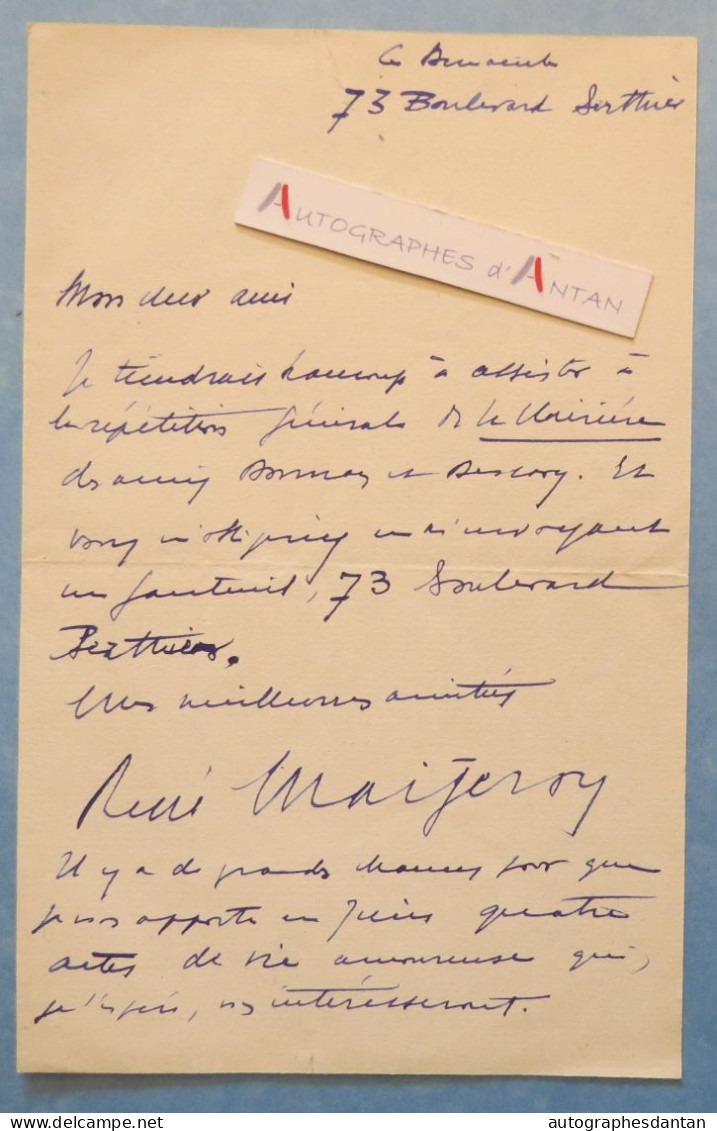 Ce Dimanche
73 Boulevard Berthier
AUTOGRAPHES d'ANTAN
Mon cher ami
Je tiendrais beaucoup à assister à
la répétition générale de la Clairière
des amis Donnay et Descaves. Et
vous m'obligeriez en m'envoyant
un fauteuil, 73 boulevard
Berthier.
Mes meilleures amitiés
René Maizeroy
Il y a de grandes chances pour que
je vous apporte en Juin quatre
actes de vie amoureuse qui,
je l'espère, vous intéresseront.
delcampe.net
autographesdantan